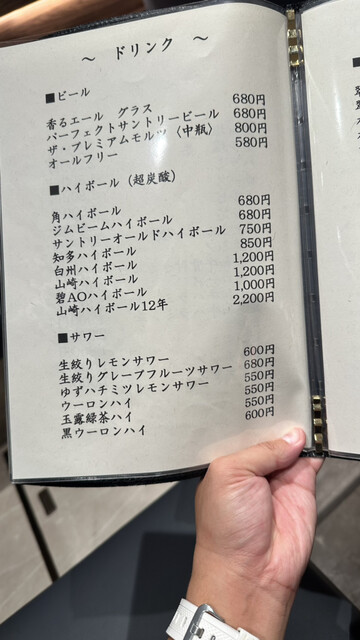 ～ ドリンク ～
■ビール
香るエール グラス 680円
パーフェクトサントリービール 680円
ザ・プレミアムモルツ〈中瓶〉 800円
オールフリー 580円
■ハイボール（超炭酸）
角ハイボール 680円
ジムビームハイボール 680円
サントリーオールドハイボール 750円
知多ハイボール 850円
白州ハイボール 1,200円
山崎ハイボール 1,200円
碧AOハイボール 1,000円
山崎ハイボール12年 2,200円
■サワー
生絞りレモンサワー 600円
生絞りグレープフルーツサワー 680円
ゆずハチミツレモンサワー 550円
ウーロンハイ 550円
玉露緑茶ハイ 550円
黒ウーロンハイ 600円